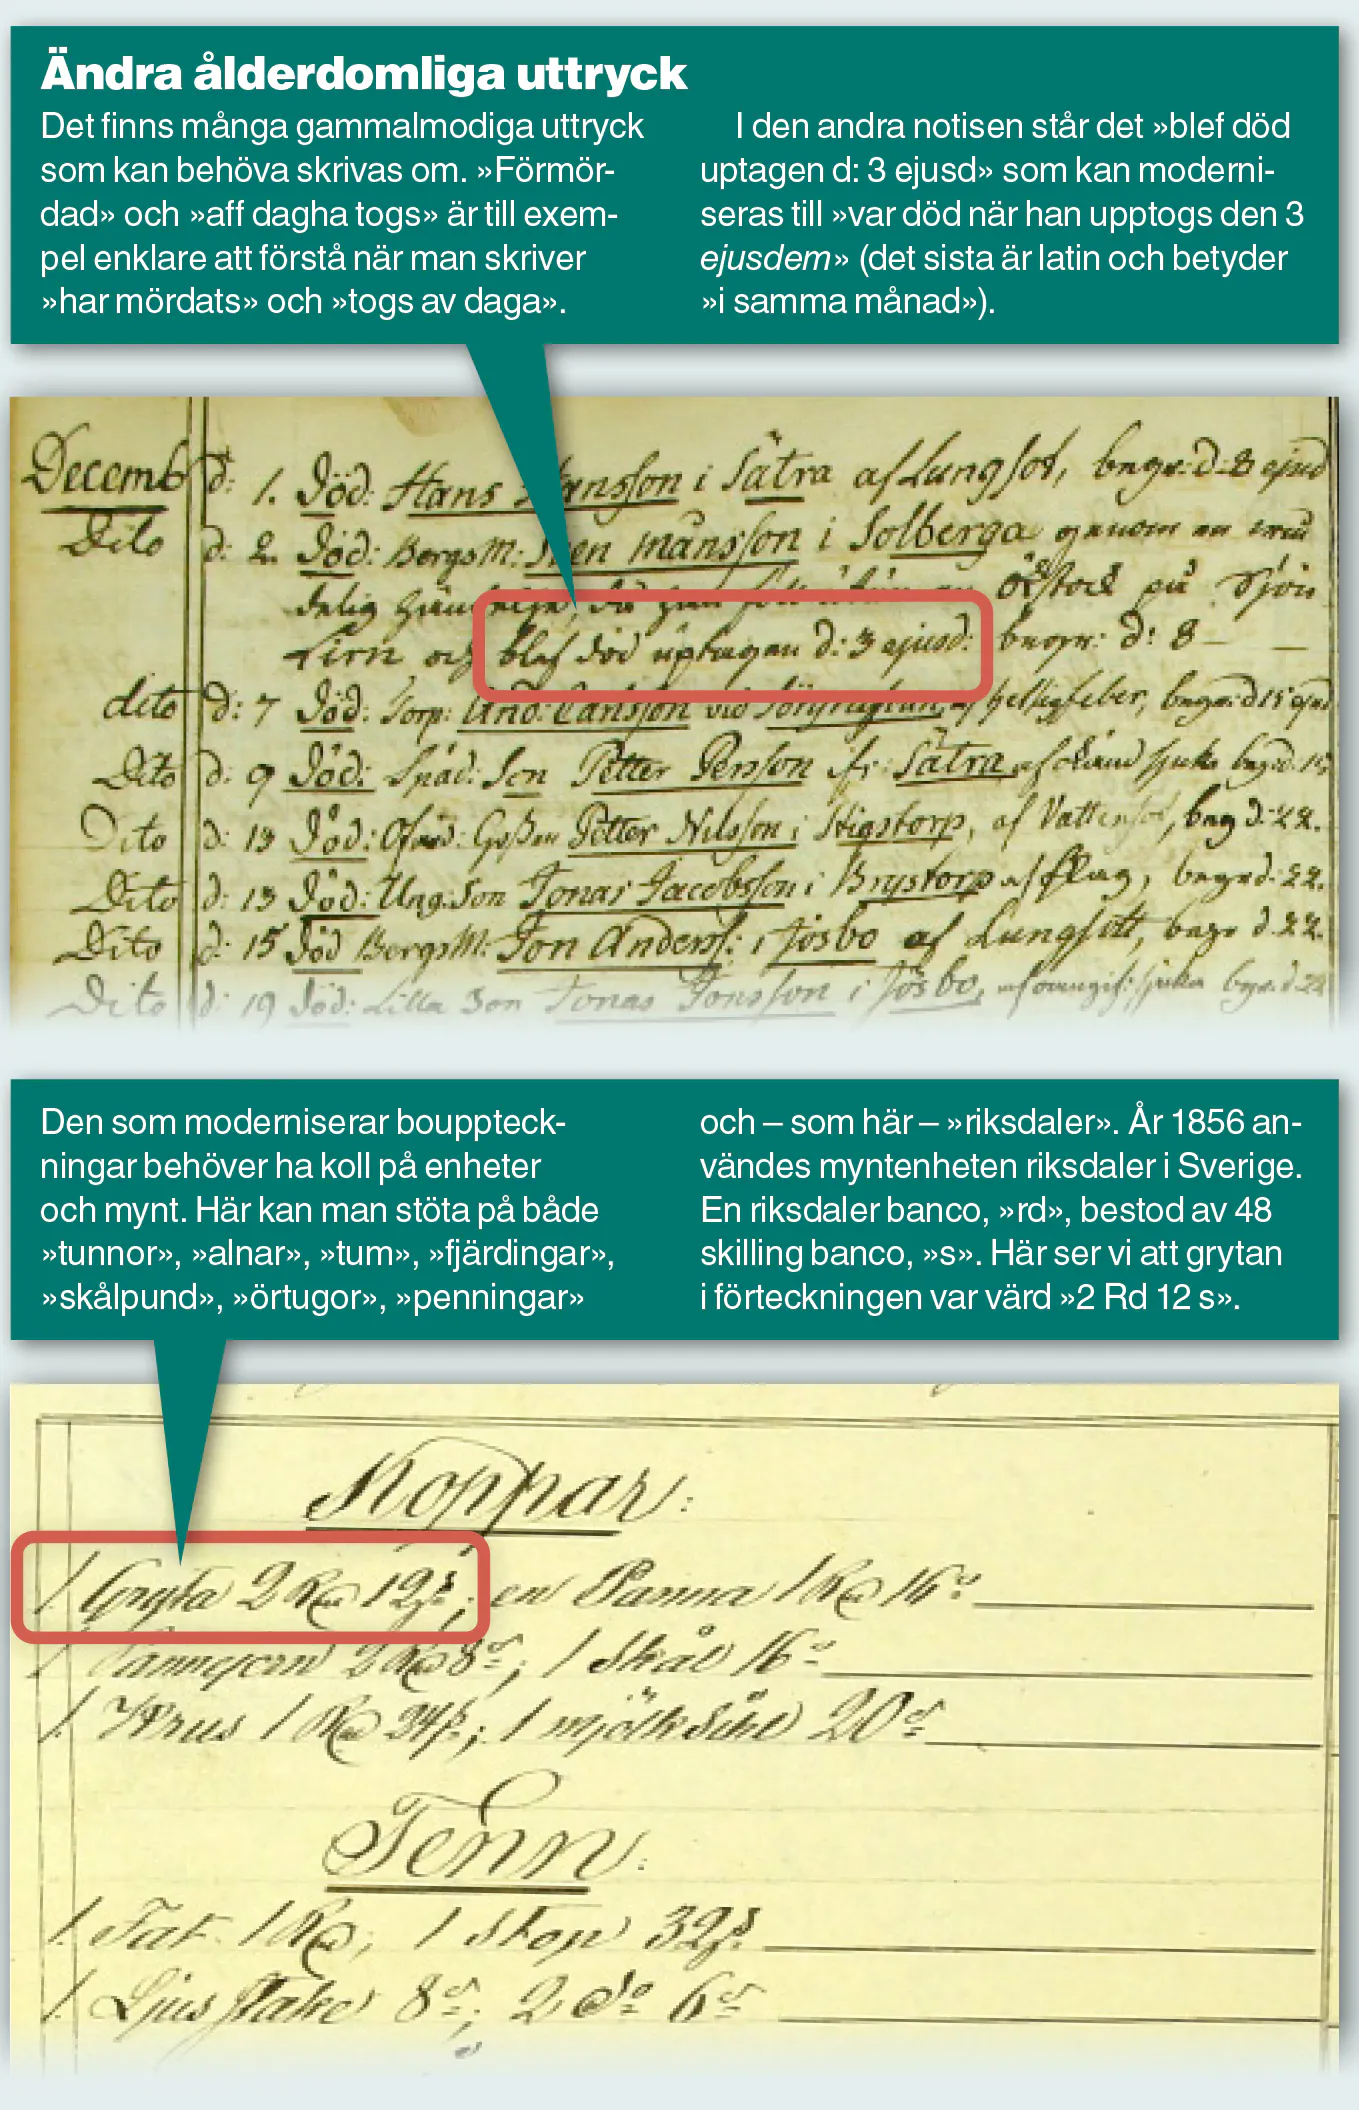 Ändra ålderdomliga uttryck
Det finns många gammalmodiga uttryck
som kan behöva skrivas om. »Förmör-
dad» och »aff dagha togs» är till exem-
pel enklare att förstå när man skriver
»har mördats» och »togs av daga».
I den andra notisen står det »blef död
uptagen d: 3 ejusd» som kan moderni-
seras till »var död när han upptogs den 3
ejusdem» (det sista är latin och betyder
»i samma månad»).
Decemb d: 1. Död: Hans i Sätra af Lungsot, begr: d: 8 ejusd
Dito d: 2. Död: BergsM: Sven Månsson i Solberga genom en
delig då han på Sjön
Lien och blef död uptagen d: 3 ejusd: begr: d: 8
dito d: 7 Död: Torp: And: Carlsson vid begr: d 15 ejusd
Dito d: 9 Död: Späd: Son Petter Persson ifr: Sätra af begr: d: 15
Dito d: 13 Död: Petter Nilsson i Stigstorp, af Vattensot, beg d: 22.
Dito d: 13 Död: Ung: Son Jonas Jacobsson i Brystorp af flug, begr d: 22.
Dito d: 15 Död BergsM: Jon Anderss: i Jösbo af Lungsott, begr d. 22.
Dito d: 19 Död: Lilla Son Jonas Jonsson i Jösbo, begr. d. 22
Den som moderniserar bouppteck-
ningar behöver ha koll på enheter
och mynt. Här kan man stöta på både
»tunnor», »alnar», »tum», »fjärdingar»,
»skålpund», »örtugor», »penningar»
och – som här – »riksdaler». År 1856 an-
vändes myntenheten riksdaler i Sverige.
En riksdaler banco, »rd», bestod av 48
skilling banco, »s». Här ser vi att grytan
i förteckningen var värd »2 Rd 12 s».
Koppar:
1 Gryta 2 Rd 12 s; en Panna 1 Rd 16 s
1 2 Rd 8 s; 1 Skål 16 s
1 Krus 1 Rd 24 s; 1 mjölksihl 20 s
Tenn:
1 Fat 1 Rd; 1 Stop 32 s
1 Ljusstake 8 s; 2 do 6 s